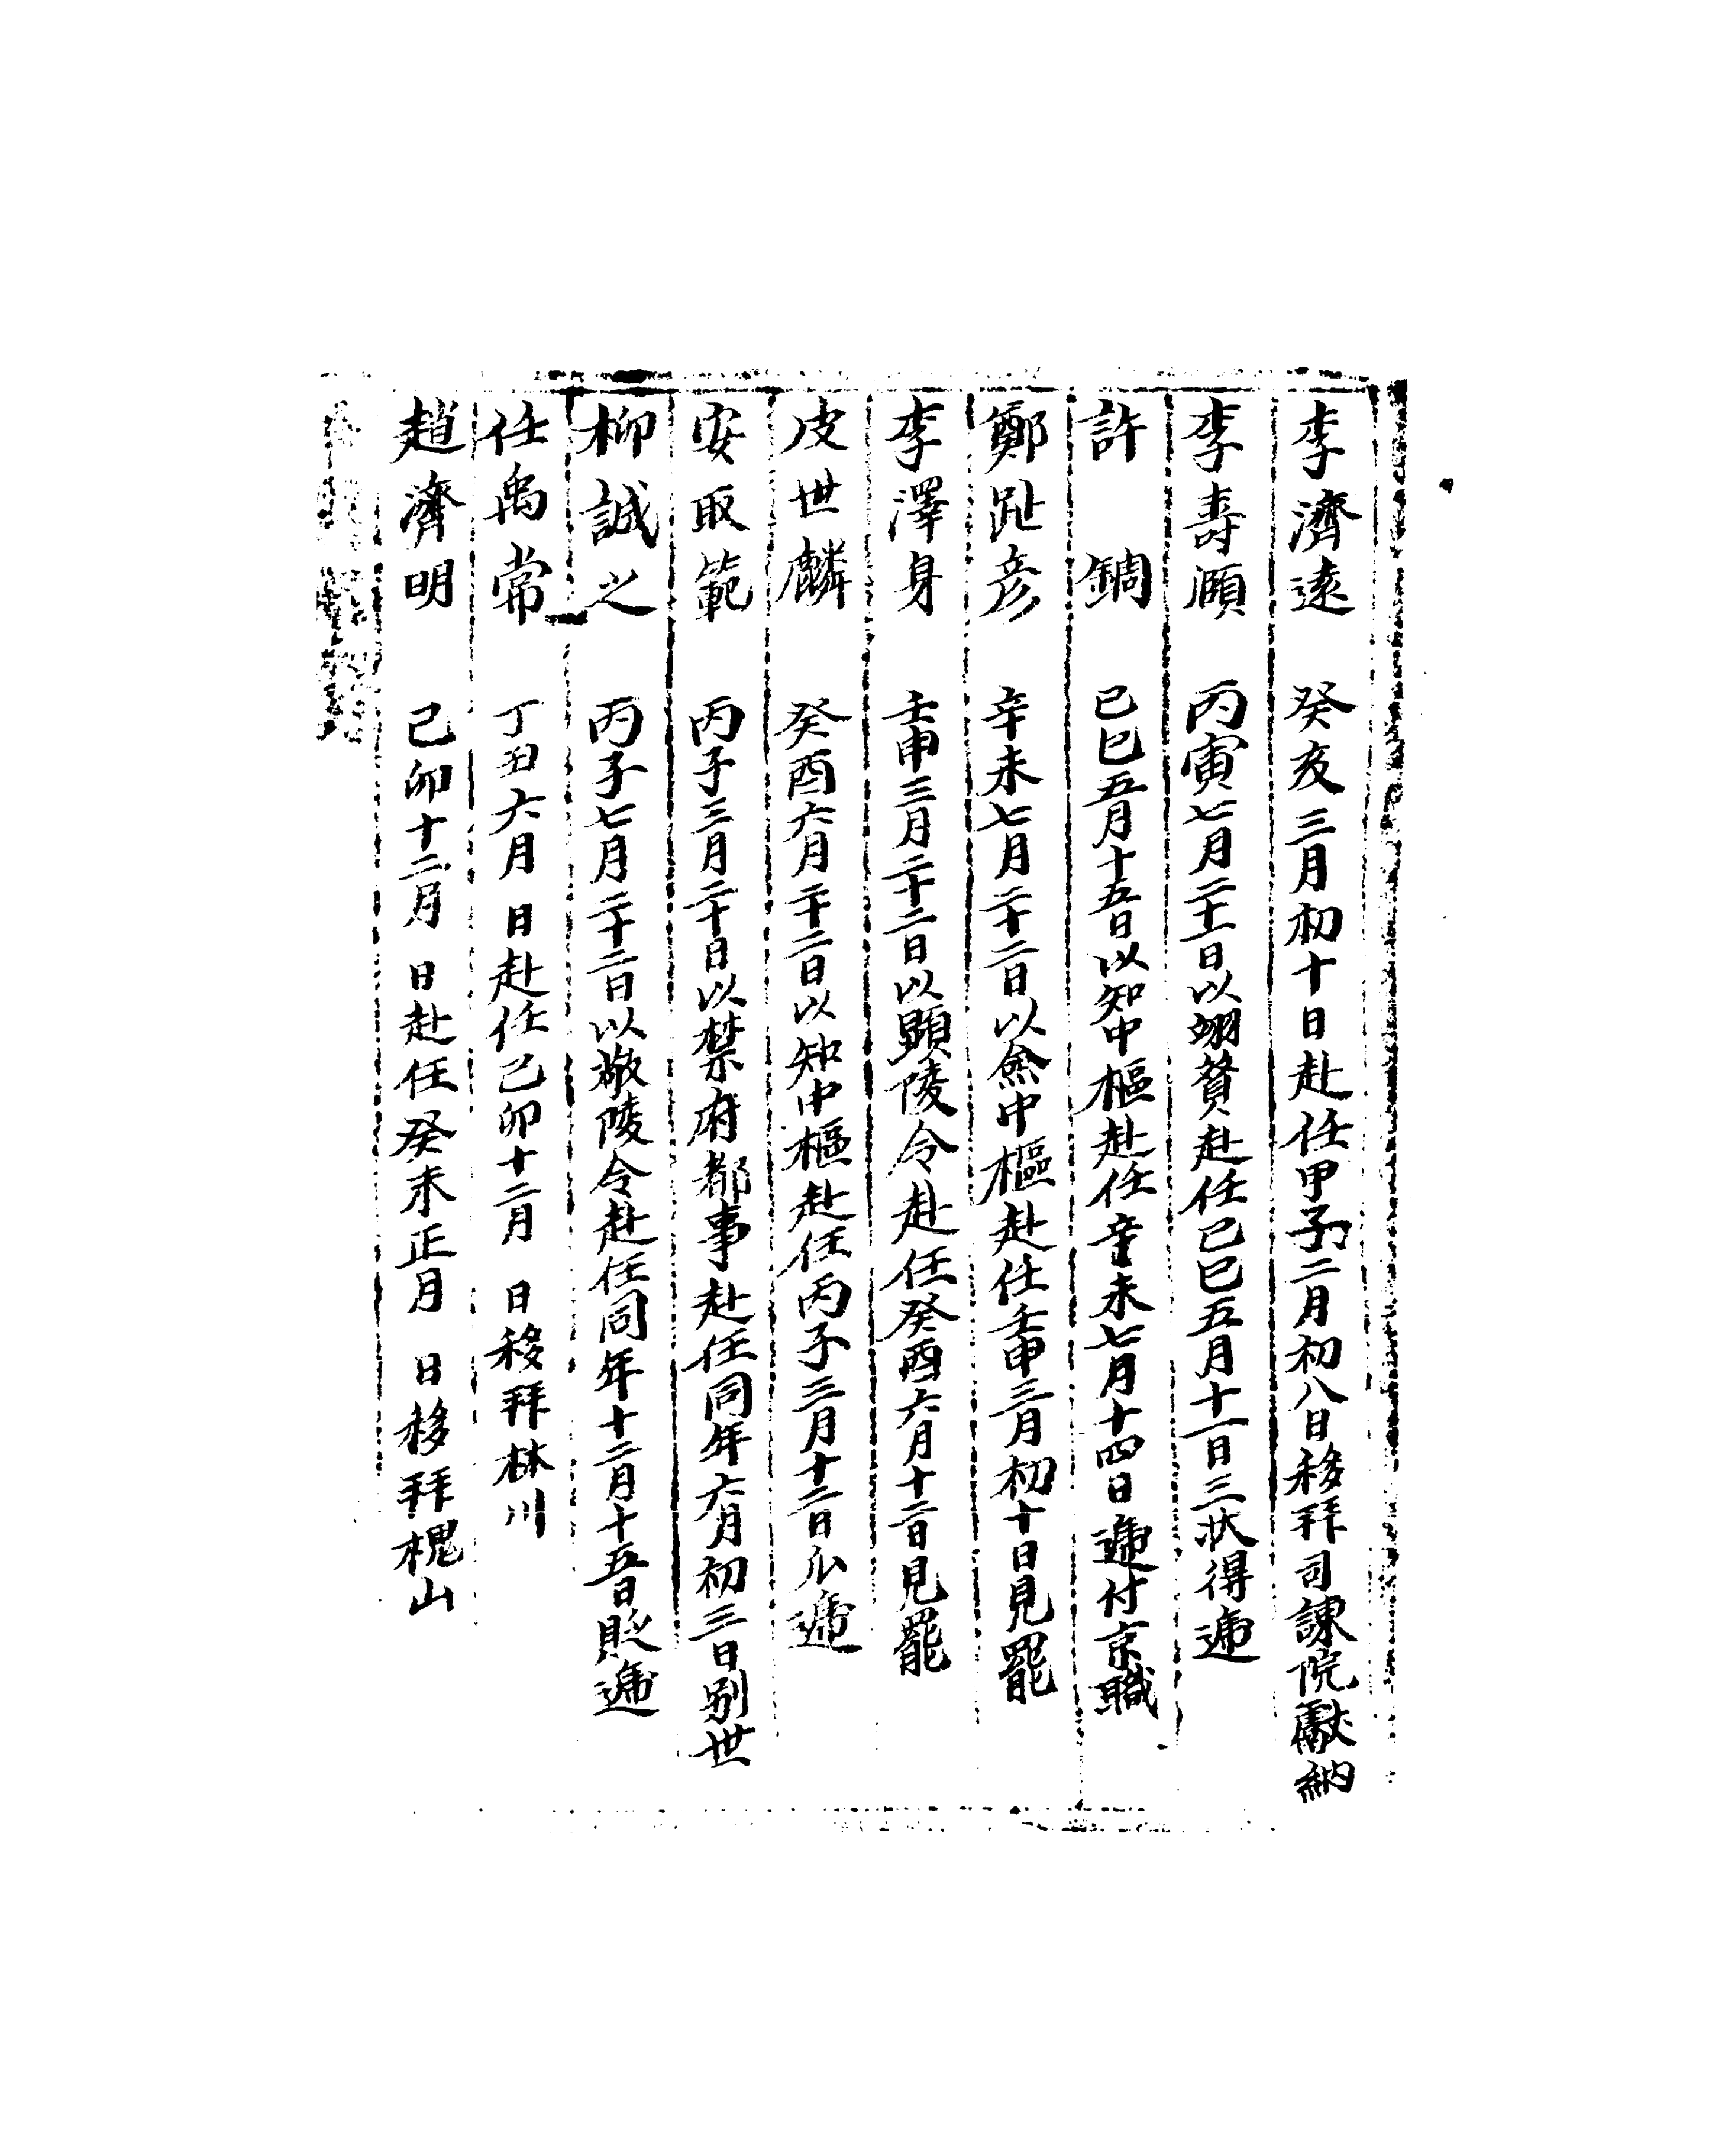 李濟遠 癸亥三月初十日赴任甲子二月初八日移拜司諫院獻納
李壽頤 丙寅七月二十一日以翊贊赴任己巳五月十一日三狀得遞
許錭 己巳五月十五日以知中樞赴任辛未七月十四日遞付京職
鄭趾彦 辛未七月二十二日以僉中樞赴任壬申三月初十日見罷
李澤身 壬申三月二十二日以顯陵令赴任癸酉六月十二日見罷
皮世麟 癸酉六月二十二日以知中樞赴任丙子三月十二日瓜遞
安取範 丙子三月二十日以禁府都事赴任同年六月初三日別世
柳誠之 丙子七月二十二日以敬陵令赴任同年十二月十五日貶遞
任禹常 丁丑六月 日赴任己卯十二月 日移拜林川
趙濟明 己卯十二月 日赴任癸未正月 日移拜槐山